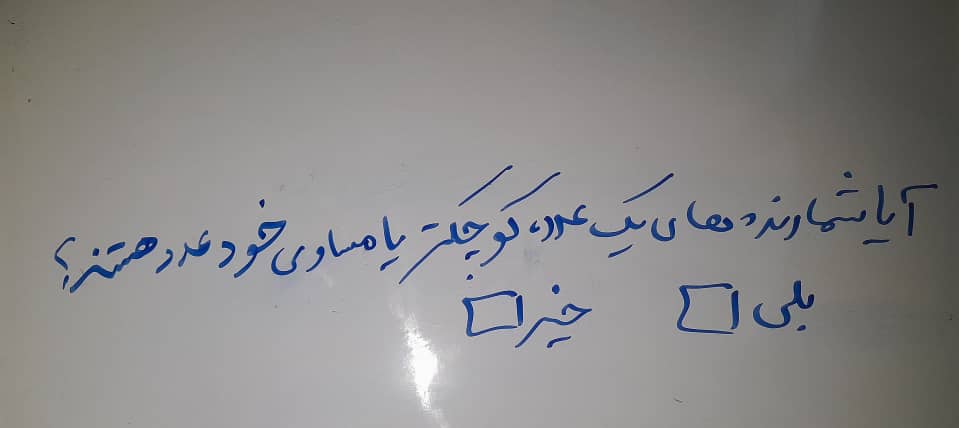 آیا شمارنده های یک عدد، کوچکتر یا مساوی خود عدد هستند؟
بلی □ خیر □